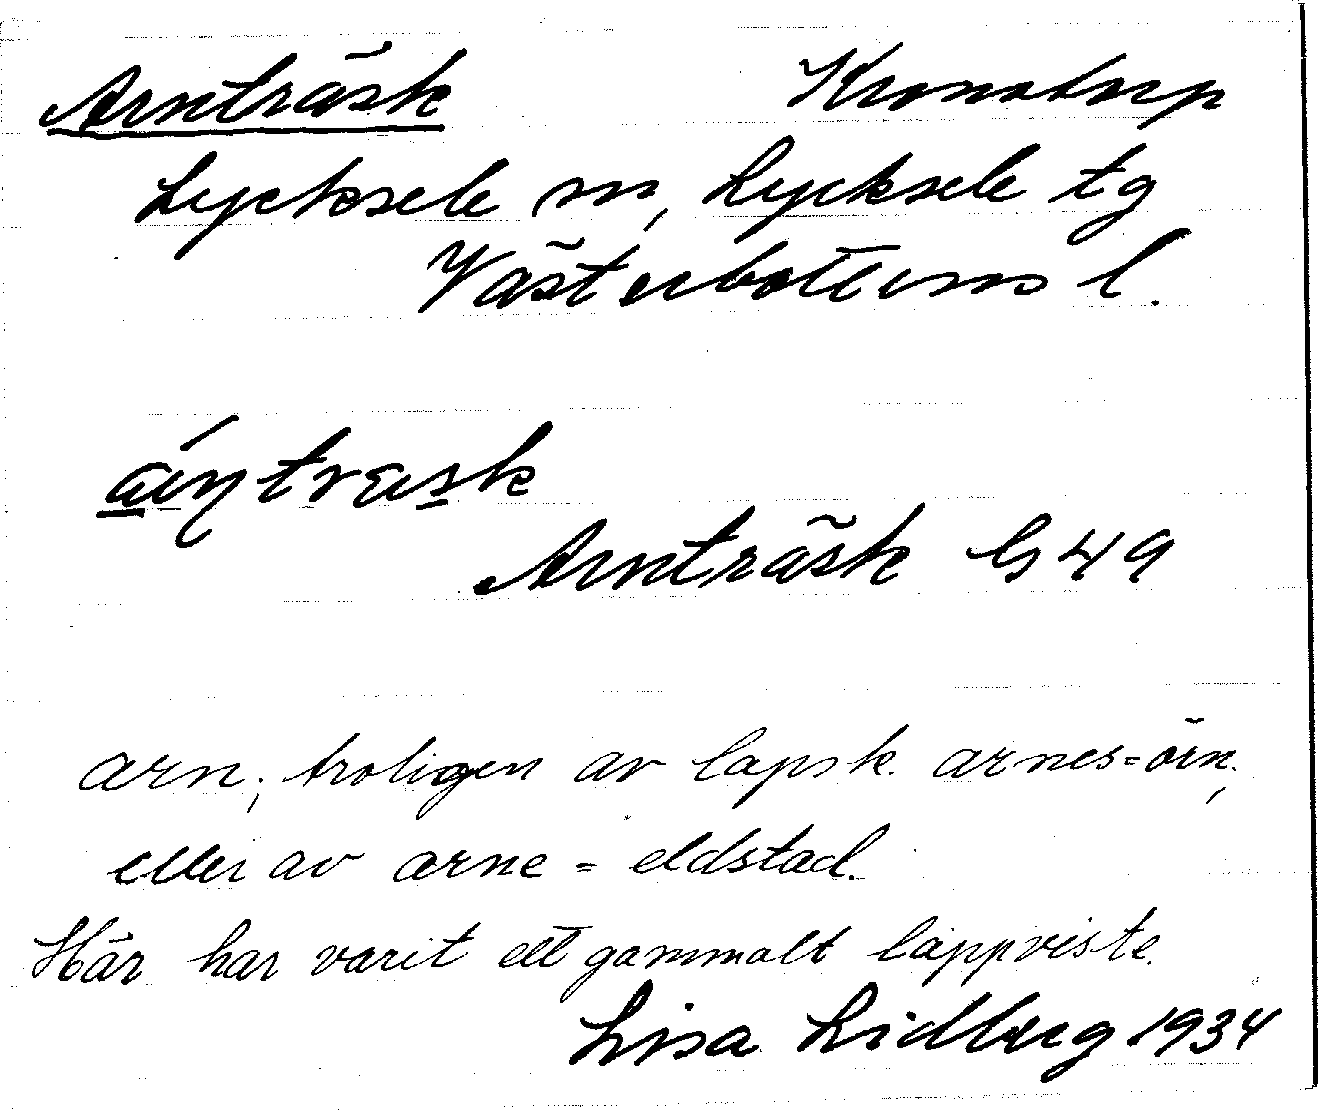 Arnträsk Kronotorp
Lycksele sn, Lycksele tg
Västerbottens l.
Arnträsk G 49
arn; troligen av lapsk. arnes=örn,
eller av arne = eldstad.
Här har varit ett gammalt lappviste.
Lisa Lidberg 1934